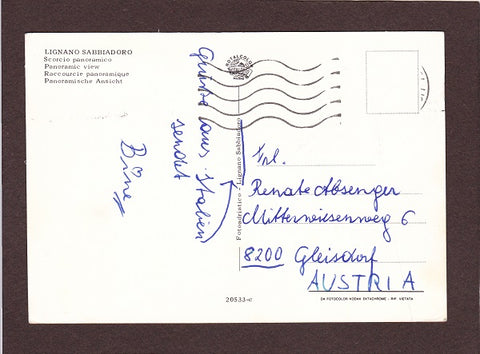 LIGNANO SABBIADORO
Scorcio panoramico
Panoramic view
Raccourcie panoramique
Panoramische Ansicht
Grüsse aus Italien
sendet
Bine
Fotoedristico - Lignano Sabbiadoro
Frl.
Renate Absenger
Mitterwiesenweg 6
8200 Gleisdorf
AUSTRIA
20533-c
DA FOTOCOLOR KODAK EKTACHROME - RIP. VIETATA